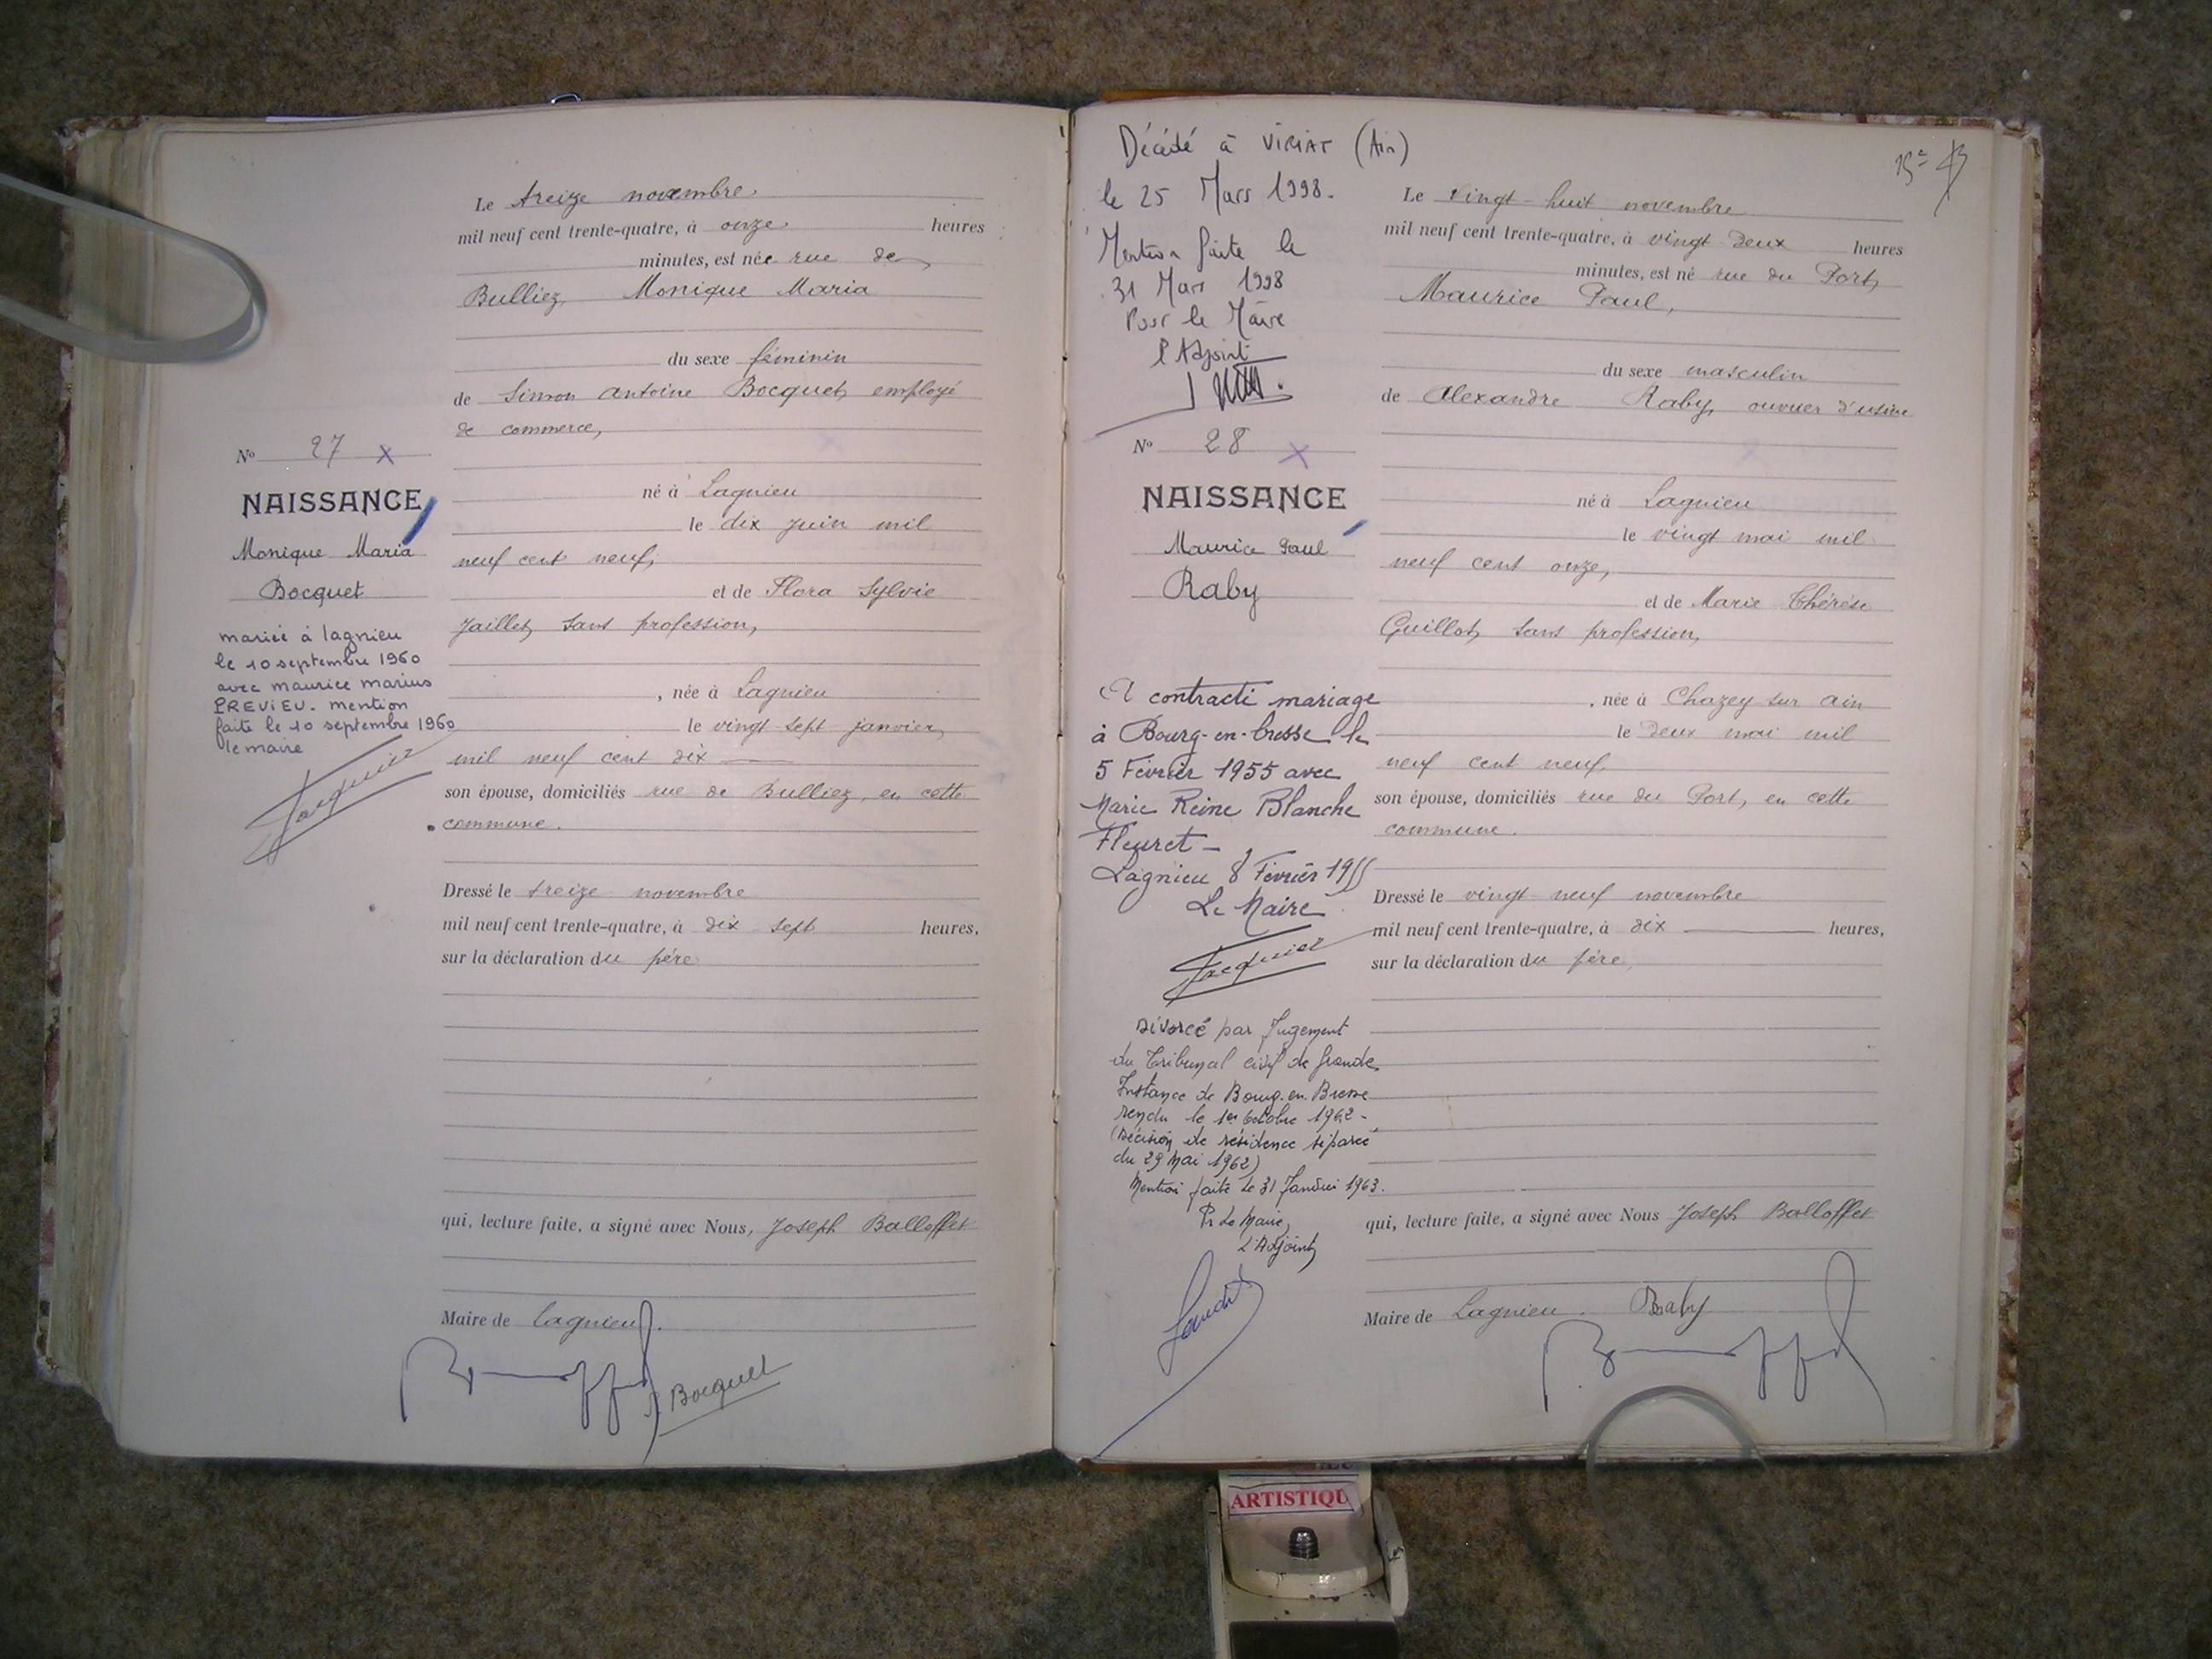 Le treize novembre
mil neuf cent trente-quatre, à onze heures
minutes, est née rue de
Bulliez, Monique Maria
du sexe féminin
de Simon Antoine Bocquet, employé
de commerce,
né à Lagnieu
le dix juin mil
neuf cent neuf,
et de Flora Sylvie
Jaillet, sans profession,
, née à Lagnieu
le vingt sept janvier,
mil neuf cent dix
son épouse, domiciliés rue de Bulliez, en cette
commune.
Dressé le treize novembre
mil neuf cent trente-quatre, à dix sept heures,
sur la déclaration du père
qui, lecture faite, a signé avec Nous, Joseph Balloffet
Maire de Lagnieu.
S. Bocquet
No 27 X
NAISSANCE
Monique Maria
Bocquet
mariée à lagnieu
le 10 septembre 1960
avec maurice marius
PREVIEU. mention
faite le 10 septembre 1960
le maire
Jacquier
Décédé à VIRIAT (Ain)
le 25 Mars 1998.
Mention faite le
31 Mars 1998
Pour le Maire
l'Adjoint
No 28 X
NAISSANCE
Maurice Paul
Raby
A contracté mariage
à Bourg-en-bresse le
5 Février 1955 avec
Marie Reine Blanche
Fleuret -
Lagnieu 8 Février 1955
Le Maire
Jacquier
Divorcé par Jugement
du Tribunal civil de Grande
Instance de Bourg-en-Bresse
rendu le 1er Octobre 1962 -
(Décision de résidence séparée
du 29 Mai 1962)
Mention faite le 31 Janvier 1963.
Pr Le Maire,
L'Adjoint,
Le vingt-huit novembre
mil neuf cent trente-quatre, à vingt deux heures
minutes, est né rue du Port,
Maurice Paul,
du sexe masculin
de Alexandre Raby, ouvrier d'usine
né à Lagnieu
le vingt mai mil
neuf cent onze,
et de Marie Thérèse
Guillot, sans profession,
, née à Chazey sur Ain
le deux mai mil
neuf cent neuf,
son épouse, domiciliés rue du Port, en cette
commune.
Dressé le vingt neuf novembre
mil neuf cent trente-quatre, à dix heures,
sur la déclaration du père,
qui, lecture faite, a signé avec Nous Joseph Balloffet
Maire de Lagnieu. Raby
ARTISTIQU